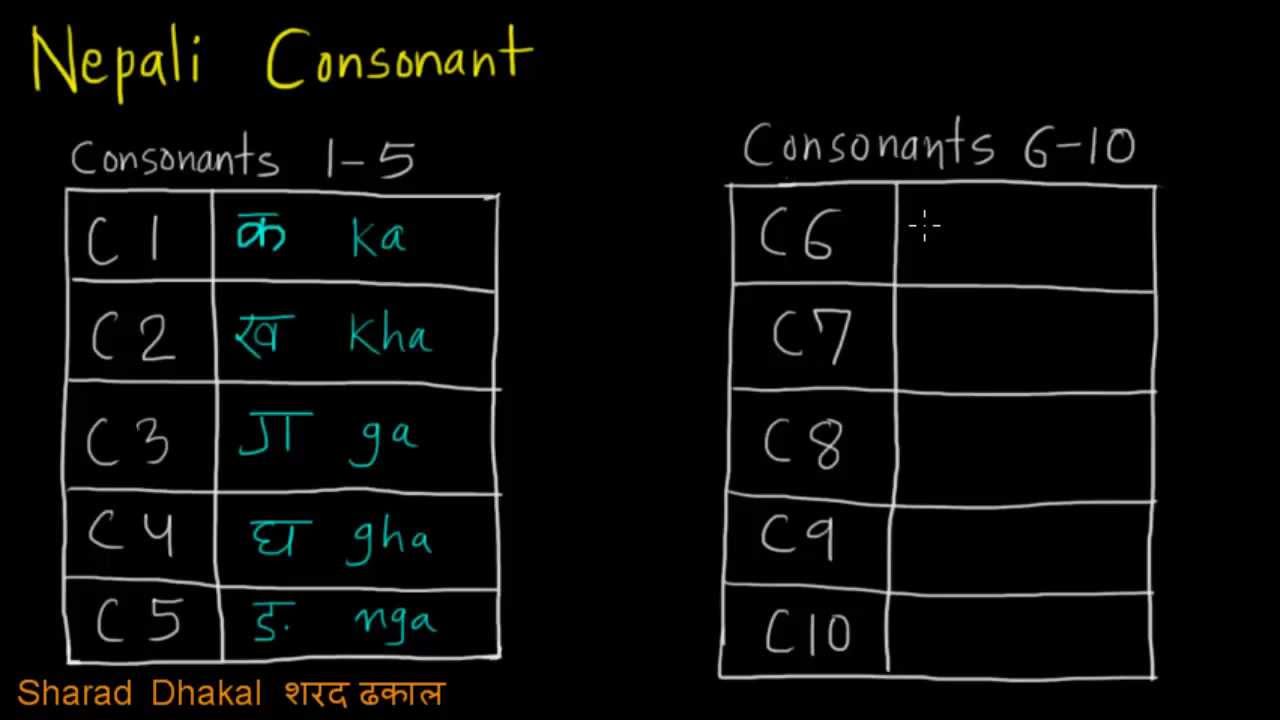 Nepali Consonant
Consonants 1-5
C1 क ka
C2 ख kha
C3 ग ga
C4 घ gha
C5 ङ nga
Consonants 6-10
C6
C7
C8
C9
C10
Sharad Dhakal शरद ढकाल